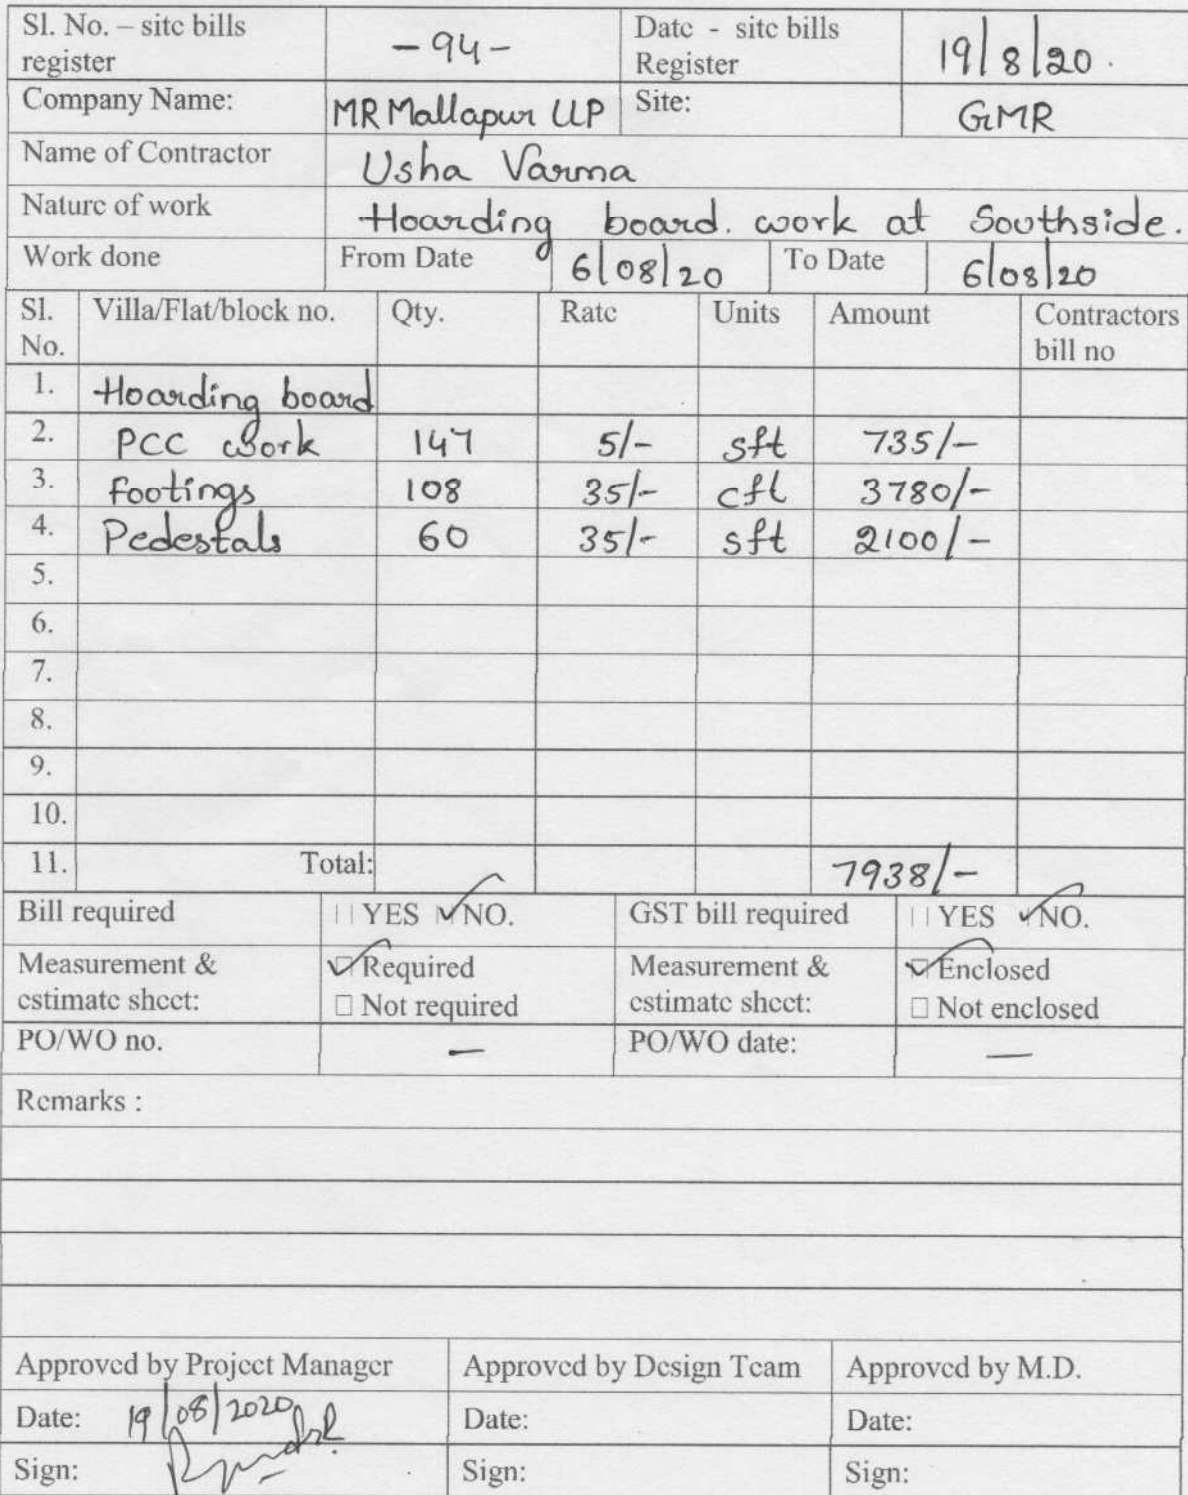 Sl. No. – site bills register -94- Date - site bills Register 19/8/20.
Company Name: MR Mallapur LLP Site: GMR
Name of Contractor Usha Varma
Nature of work Hoarding board. work at Southside.
Work done From Date 6/08/20 To Date 6/08/20
Sl. No. Villa/Flat/block no. Qty. Rate Units Amount Contractors bill no
1. Hoarding board
2. PCC work 147 5/- sft 735/-
3. footings 108 35/- cft 3780/-
4. Pedestals 60 35/- sft 2100/-
5.
6.
7.
8.
9.
10.
11. Total: 7938/-
Bill required □ YES ✓ NO. GST bill required □ YES ✓ NO.
Measurement & estimate sheet: ☑ Required Measurement & estimate sheet: ☑ Enclosed
□ Not required □ Not enclosed
PO/WO no. — PO/WO date: —
Remarks :
Approved by Project Manager Approved by Design Team Approved by M.D.
Date: 19/08/2020 Date: Date:
Sign: Sign: Sign: